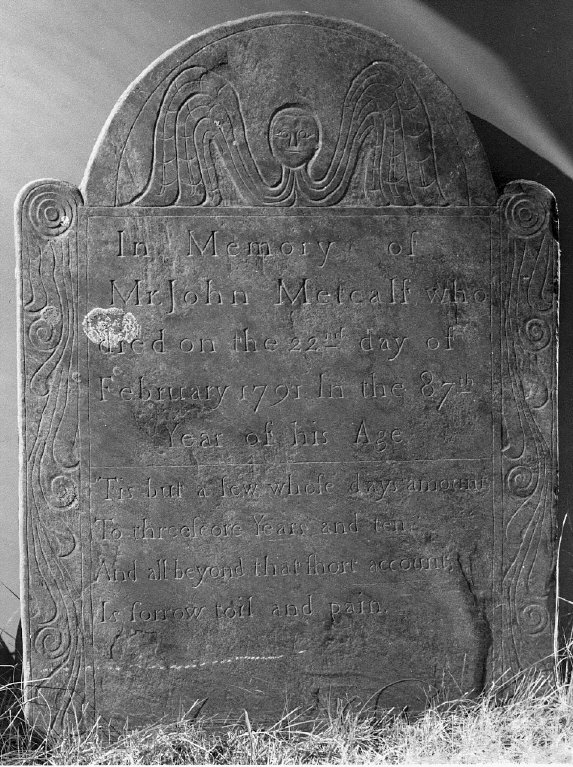 In Memory of
Mr John Metcalf who
died on the 22nd day of
February 1791 In the 87th
Year of his Age
'Tis but a few whose days amount
To threeſcore Years and ten
And all beyond that ſhort account,
Is ſorrow toil and pain.